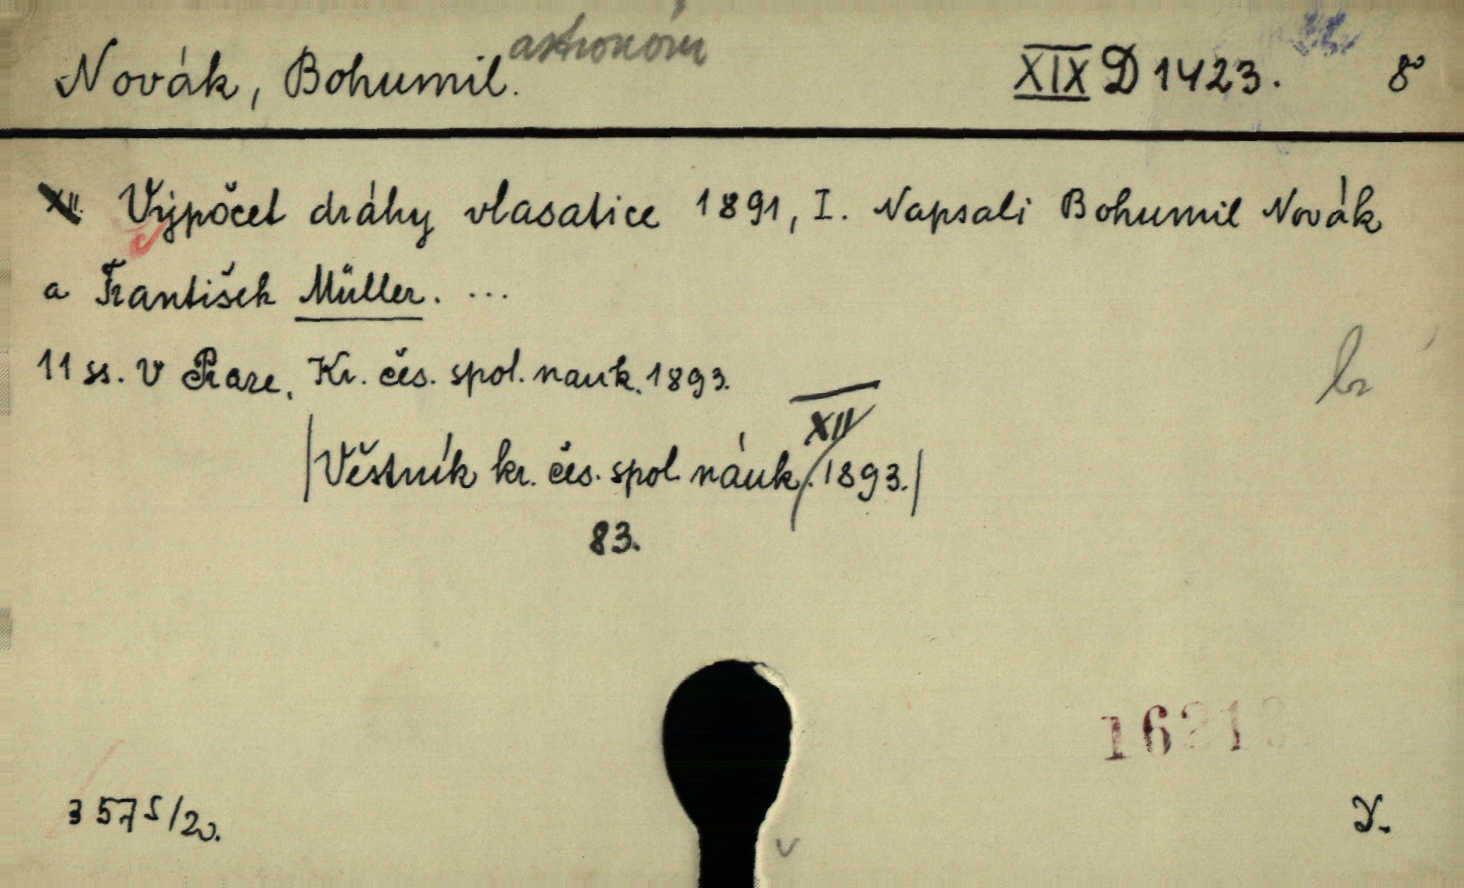 Novák, Bohumil. astronom XIX D 1423. 8°
Výpočet dráhy vlasatice 1891, I. Napsali Bohumil Novák
a František Müller. ...
11 ss. V Praze, Kr. čes. spol. nauk. 1893.
XII
|Věstník kr. čes. spol. náuk. 1893.|
83.